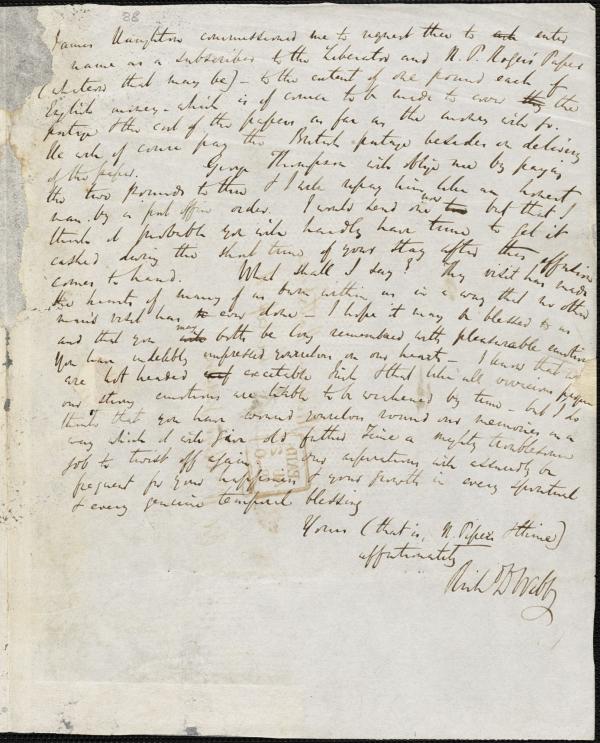 88
James Haughton commissioned me to request thee to ask enter
name as a subscriber to the Liberator and N. P. Rogers Paper
(whatever that may be) - to the extent of one pound each of
English money - which is of course to be made to cover they the
postage & the cost of the papers as far as the money will go.
He will of course pay the British postage besides on delivery
of the paper. George Thompson will oblige me by paying
the two pounds to thee & I will repay him like an honest
man by a post office order. I would send one now but that I
think it probable you will hardly have time to get it
cashed during the short time of your stay after this effusion
comes to hand. What shall I say? Thy visit has made
the hearts of many of us burn within us in a way that no other
man's visit has ever done - I hope it may be blessed to us
and that you may both be long remembered with pleasurable emotion
You have indelibly impressed yourselves on our hearts - I know that we
are hot headed excitable Irish & that like all
our strong emotions are liable to be weakened by time - but I do
think that you have wound yourselves round our memories in a
way which it will give old father Time a mighty troublesome
job to twist off again. our aspirations will assuredly be
frequent for your happiness & your growth in every spiritual
& every genuine temporal blessing
Yours (that is, N. P. & thine)
affectionately
Rich D Webb
PAID